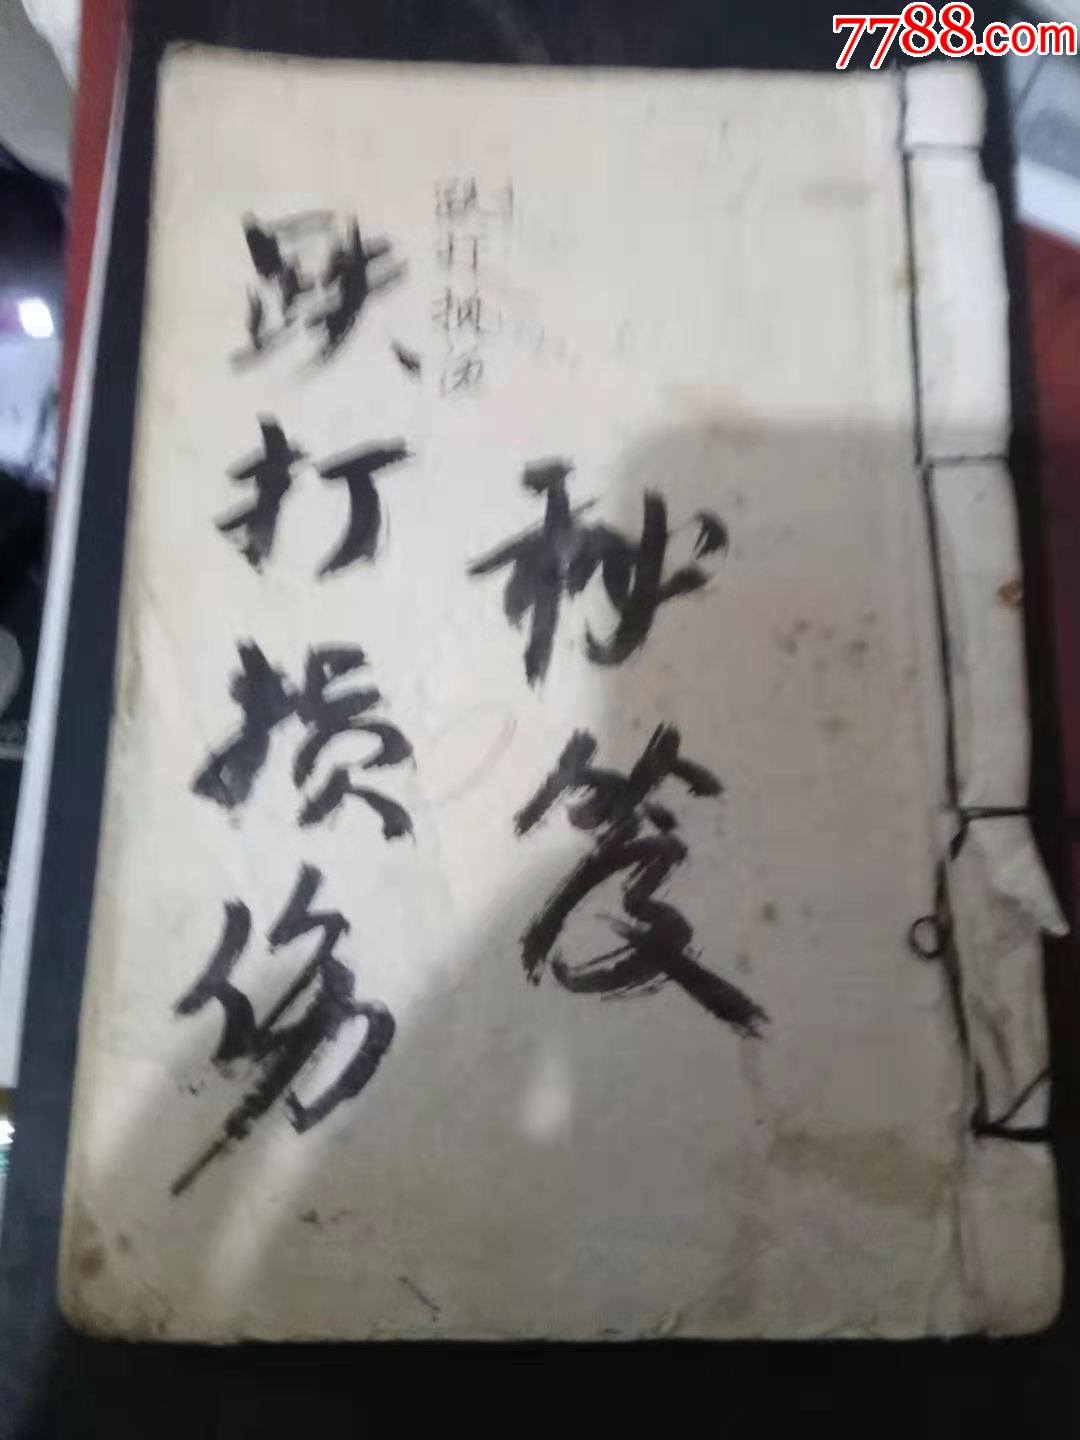 7788.com
跌打损伤
跌打损伤
秘笈